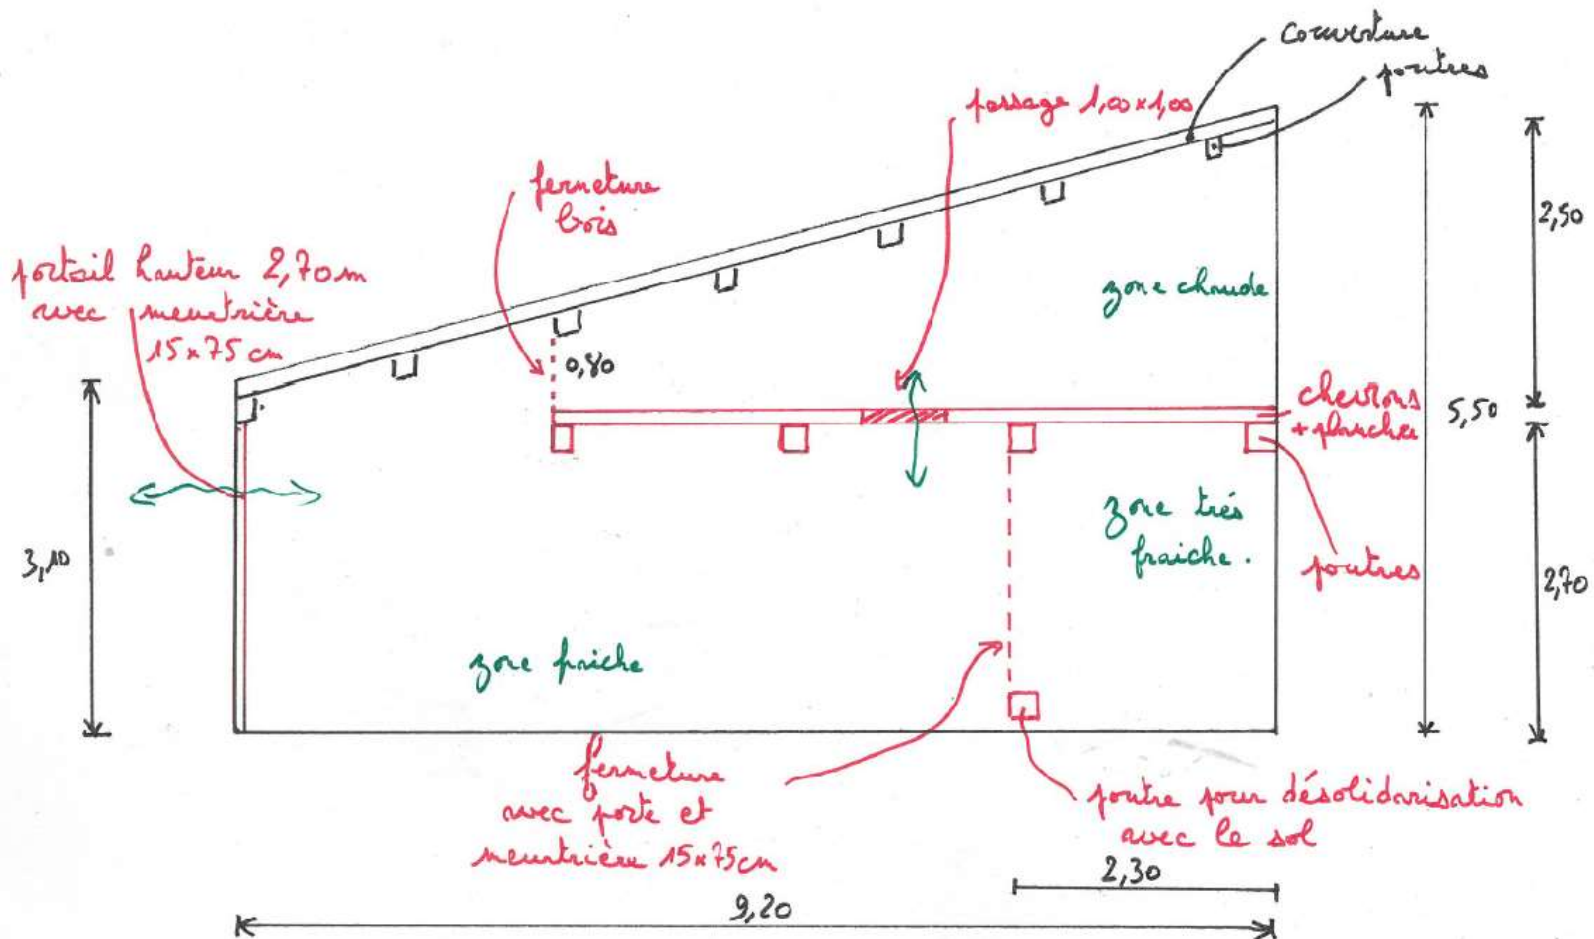 couverture
poutres
passage 1,00x1,00
fermeture
bois
portail hauteur 2,70m
avec meurtrière
15x75 cm
2,50
zone chaude
0,80
chevrons
+ plancher
5,50
zone très
fraiche.
poutres
3,10
2,70
zone friche
fermeture
avec porte et
meurtrière 15x75cm
poutre pour désolidarisation
avec le sol
2,30
9,20